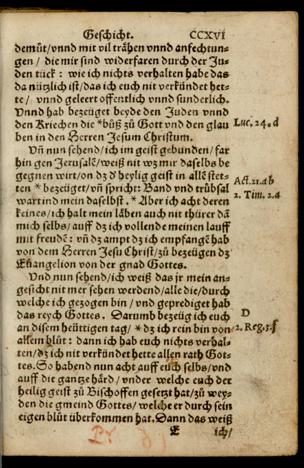 Geschicht. CCXVI
demůt/vnnd mit vil trähen vnnd anfechtun-
gen / die mir sind widerfaren durch der Ju-
den tück : wie ich nichts verhalten habe das
da nützlich ist/das ich euch nit verkündet het-
te/ vnnd geleert offentlich vnnd sunderlich.
Vnnd hab bezeüget beyde den Juden vnnd
den Kriechen die *bůß zů Gott vnd den glau
ben in den Herren Jesum Christum.
Luc. 24. d
Vñ nun sehend/ich im geist gebunden/far
hin gen Jerusalē/weiß nit wz mir daselbs be
gegnen wirt/on dz d' heylig geist in allē stet-
ten * bezeüget/vñ spricht: Band vnd trübsal
Act. 21. a b
wartind mein daselbst. * Aber ich acht deren
2. Tim. 2. a
keines/ich halt mein läben auch nit thürer dā
mich selbs/auff dz ich vollende meinen lauff
mit freudē : vñ dz ampt dz ich empfangē hab
von dem Herren Jesu Christ/zů bezeügen dz
Euangelion von der gnad Gottes.
Vnd nun sehend/ich weiß das jr mein an-
gesicht nit mer sehen werdend/alle die/durch
welche ich gezogen bin / vnd geprediget hab
das reych Gottes. Darumb bezeüg ich euch
D
an disem heüttigen tag/ * dz ich rein bin von
2. Reg. 3. f
allem blůt : dann ich hab euch nichts verhal-
ten/dz ich nit verkündet hette allen rath Got-
tes. So habend nun acht auff euch selbs/vnd
auff die gantze härd / vnder welche euch der
heilig geist zů Bischoffen gesetzt hat/zů wey-
den die gmeind Gottes/ welche er durch sein
eigen blůt überkommen hat. Dann das weiß
E ich/